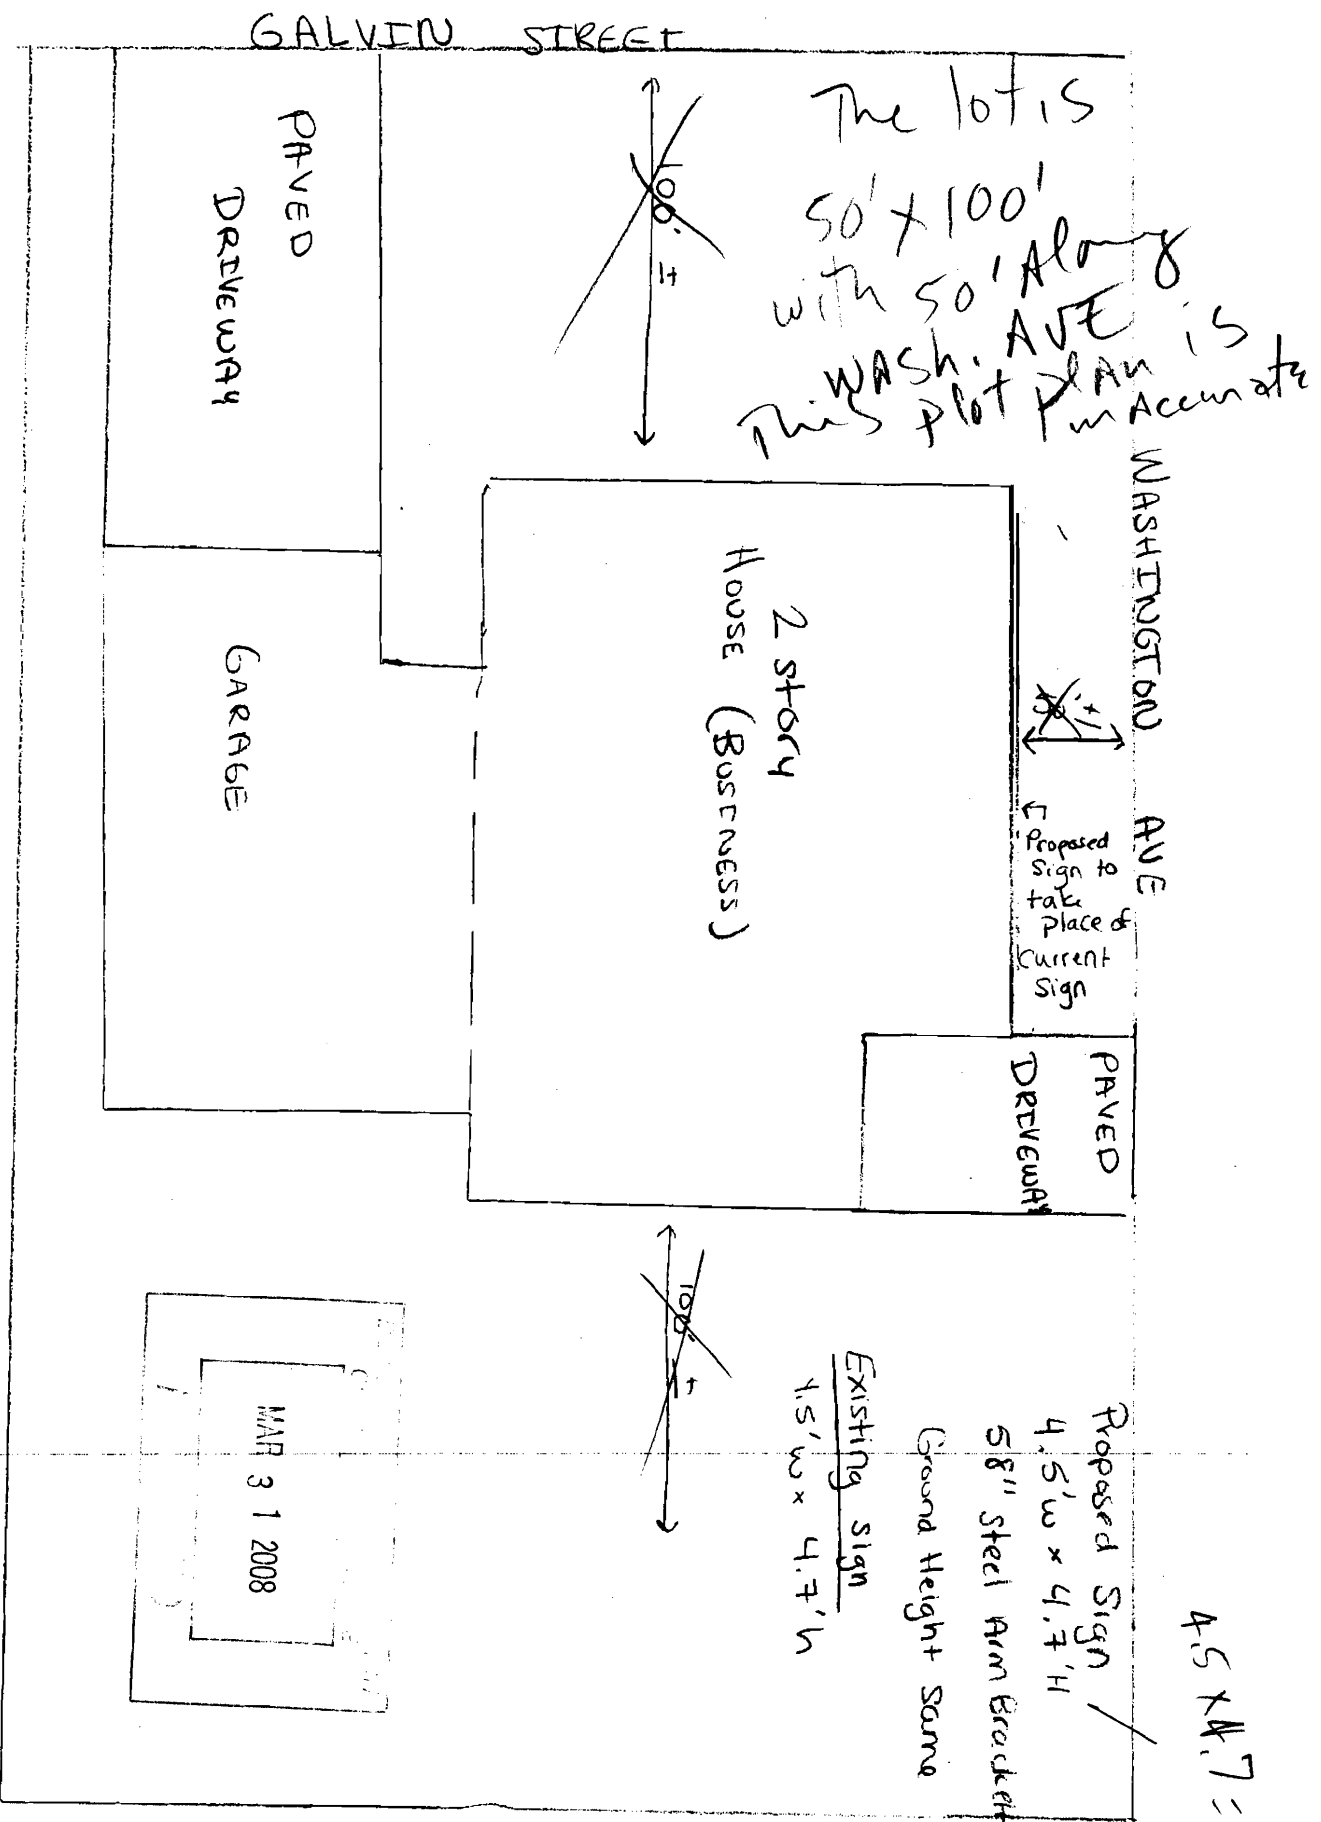 GALVIN STREET
The lot is
50' x 100'
with 50' Along
WASh. AVE
This plot plan is
inAccurate
PAVED
DRIVEWAY
100' ±
WASHINGTON AVE
2 story
House (BUSINESS)
GARAGE
Proposed
Sign to
take
place of
Current
Sign
PAVED
DRIVEWAY
100' ±
Existing Sign
4.5'w x 4.7'h
Proposed Sign
4.5'w x 4.7'H
58" Steel Arm Bracket
Ground Height Same
4.5 x 4.7 =
MAR 31 2008